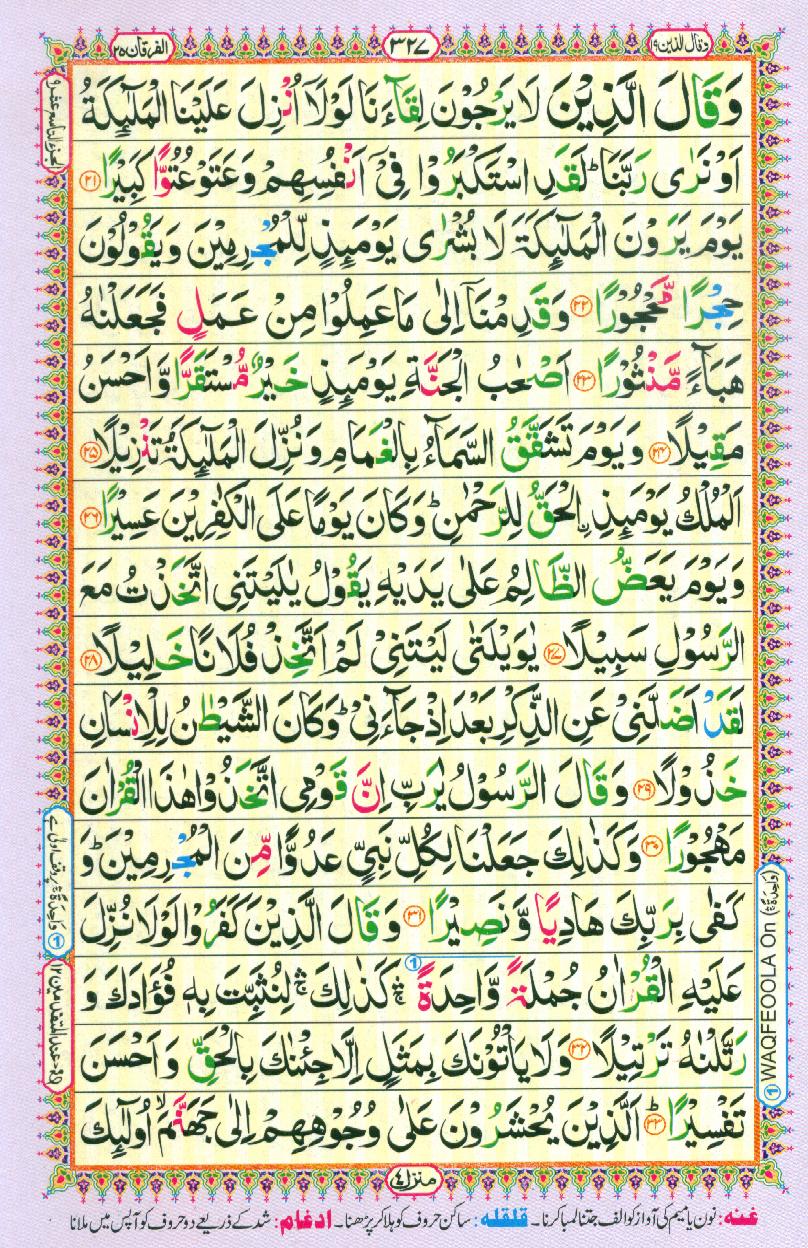 وقال الذين ١٩
٣٢٧
الفرقان ٢٥
وَقَالَ الَّذِيْنَ لَا يَرْجُوْنَ لِقَآءَنَا لَوْلَاۤ اُنْزِلَ عَلَيْنَا الْمَلٰٓئِكَةُ
اَوْ نَرٰى رَبَّنَا ؕ لَقَدِ اسْتَكْبَرُوْا فِىْۤ اَنْفُسِهِمْ وَعَتَوْ عُتُوًّا كَبِيْرًا ﴿۲۱﴾
يَوْمَ يَرَوْنَ الْمَلٰٓئِكَةَ لَا بُشْرٰى يَوْمَئِذٍ لِّلْمُجْرِمِيْنَ وَيَقُوْلُوْنَ
حِجْرًا مَّحْجُوْرًا ﴿۲۲﴾ وَقَدِمْنَاۤ اِلٰى مَا عَمِلُوْا مِنْ عَمَلٍ فَجَعَلْنٰهُ
هَبَآءً مَّنْثُوْرًا ﴿۲۳﴾ اَصْحٰبُ الْجَنَّةِ يَوْمَئِذٍ خَيْرٌ مُّسْتَقَرًّا وَّاَحْسَنُ
مَقِيْلًا ﴿۲۴﴾ وَيَوْمَ تَشَقَّقُ السَّمَآءُ بِالْغَمَامِ وَنُزِّلَ الْمَلٰٓئِكَةُ تَنْزِيْلًا ﴿۲۵﴾
اَلْمُلْكُ يَوْمَئِذِ اِۨلْحَقُّ لِلرَّحْمٰنِ ؕ وَكَانَ يَوْمًا عَلَى الْكٰفِرِيْنَ عَسِيْرًا ﴿۲۶﴾
وَيَوْمَ يَعَضُّ الظَّالِمُ عَلٰى يَدَيْهِ يَقُوْلُ يٰلَيْتَنِى اتَّخَذْتُ مَعَ
الرَّسُوْلِ سَبِيْلًا ﴿۲۷﴾ يٰوَيْلَتٰى لَيْتَنِىْ لَمْ اَتَّخِذْ فُلَانًا خَلِيْلًا ﴿۲۸﴾
لَقَدْ اَضَلَّنِىْ عَنِ الذِّكْرِ بَعْدَ اِذْ جَآءَنِىْ ؕ وَكَانَ الشَّيْطٰنُ لِلْاِنْسَانِ
خَذُوْلًا ﴿۲۹﴾ وَقَالَ الرَّسُوْلُ يٰرَبِّ اِنَّ قَوْمِى اتَّخَذُوْا هٰذَا الْقُرْاٰنَ
مَهْجُوْرًا ﴿۳۰﴾ وَكَذٰلِكَ جَعَلْنَا لِكُلِّ نَبِىٍّ عَدُوًّا مِّنَ الْمُجْرِمِيْنَ ؕ وَ
كَفٰى بِرَبِّكَ هَادِيًا وَّنَصِيْرًا ﴿۳۱﴾ وَقَالَ الَّذِيْنَ كَفَرُوْا لَوْلَا نُزِّلَ
عَلَيْهِ الْقُرْاٰنُ جُمْلَةً وَّاحِدَةً ۛۚ كَذٰلِكَ ۛۚ لِنُثَبِّتَ بِهٖ فُؤَادَكَ وَ
رَتَّلْنٰهُ تَرْتِيْلًا ﴿۳۲﴾ وَلَا يَاْتُوْنَكَ بِمَثَلٍ اِلَّا جِئْنٰكَ بِالْحَقِّ وَاَحْسَنَ
تَفْسِيْرًا ؕ ﴿۳۳﴾ اَلَّذِيْنَ يُحْشَرُوْنَ عَلٰى وُجُوْهِهِمْ اِلٰى جَهَنَّمَ ۙ اُولٰٓئِكَ
① WAQFEOOLA On (وَاحِدَةً ۛۚ)
① وَاحِدَةً ۛۚ پر وقف اولیٰ ہے
منزل ٤
غنه: نون یا میم کی آواز کو الف جتنا لمبا کرنا۔ قلقله: ساکن حروف کو ہلا کر پڑھنا۔ ادغام: شد کے ذریعے دو حروف کو آپس میں ملانا